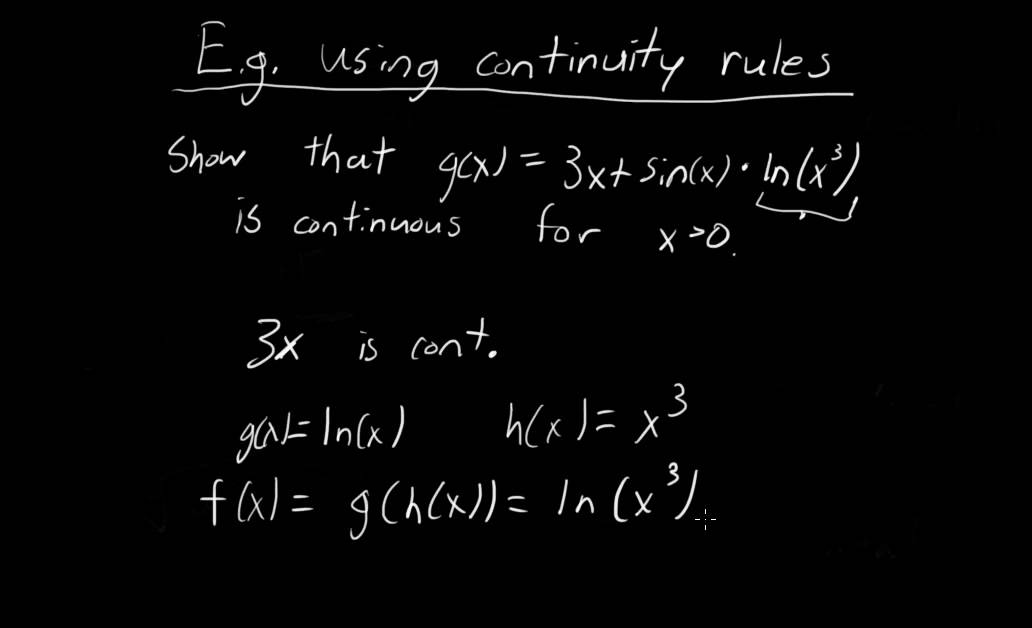 E.g. using continuity rules
Show that g(x) = 3x + sin(x) · ln(x³)
is continuous for x > 0.
3x is cont.
g(x) = ln(x) h(x) = x³
f(x) = g(h(x)) = ln(x³)